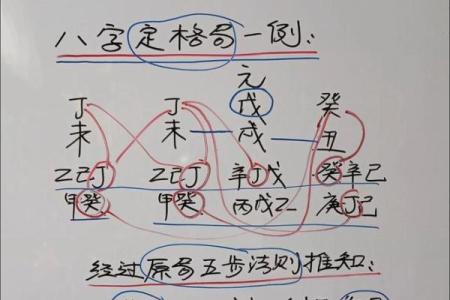 八字定格局一例:
元
丁 丁 戊 癸
未 未 戌 丑
乙己丁 乙己丁 辛丁戊 癸辛己
甲癸 甲癸 丙戊乙 庚丁己
经过原局五步法则推知: